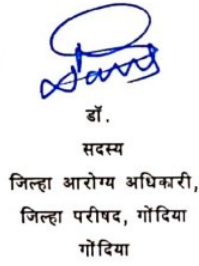 डॉ.
सदस्य
जिल्हा आरोग्य अधिकारी,
जिल्हा परीषद, गोंदिया
गोंदिया